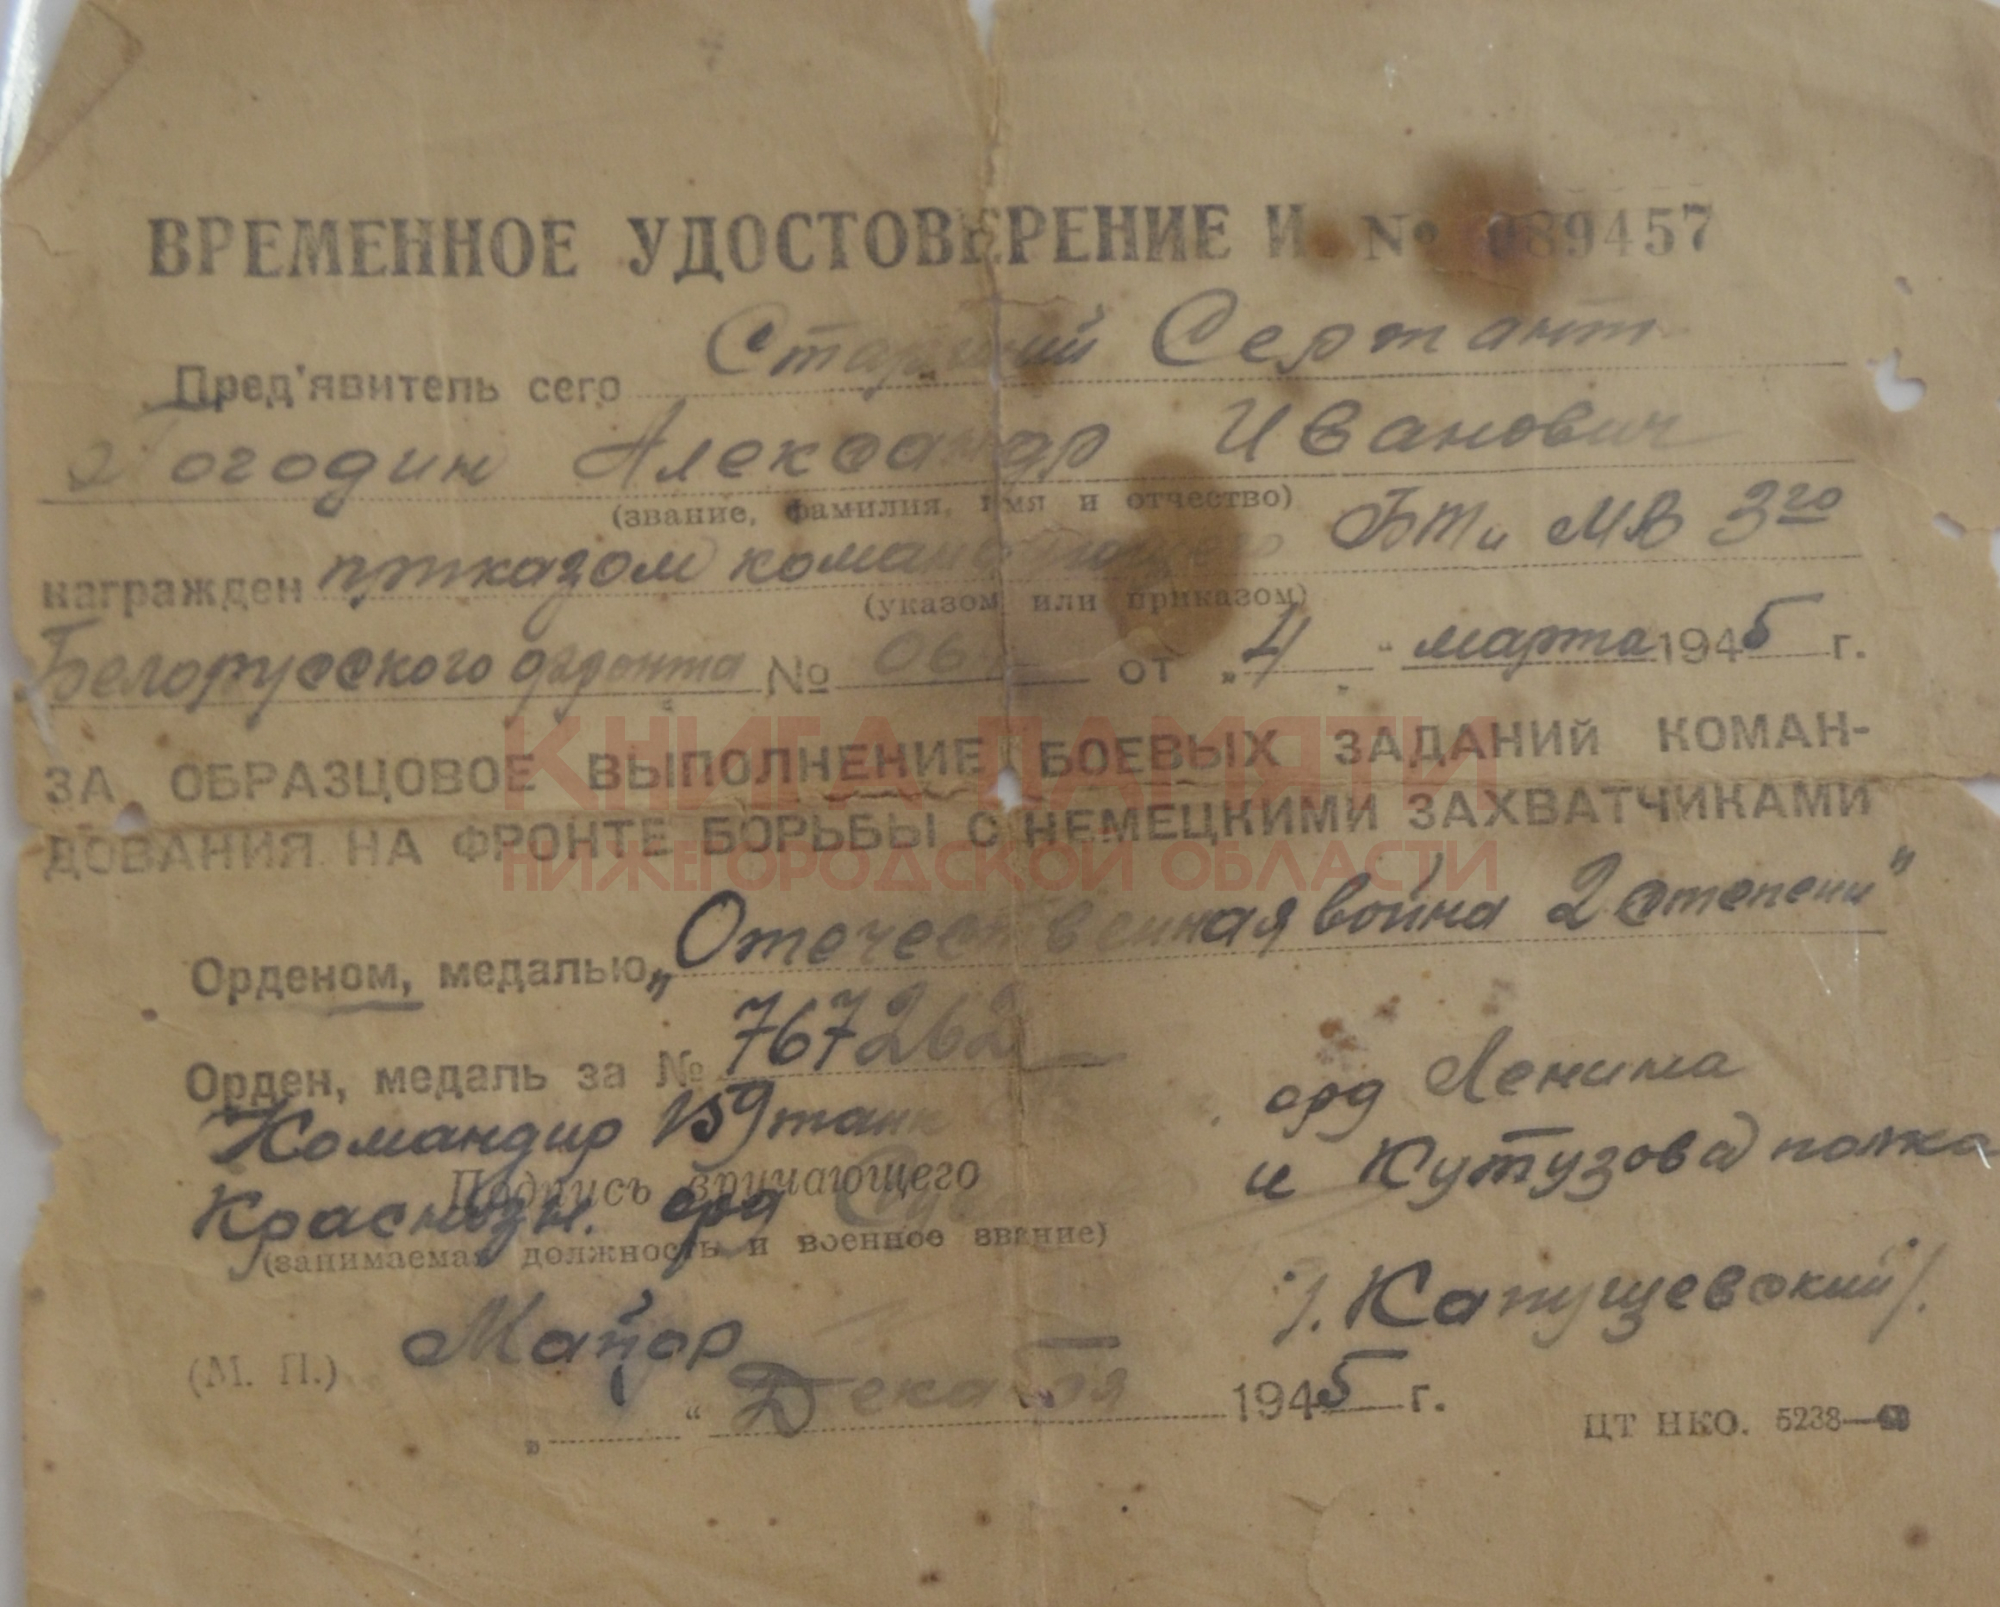 ВРЕМЕННОЕ УДОСТОВЕРЕНИЕ И № 089457
Пред'явитель сего Старший Сержант
Погодин Александр Иванович
(звание, фамилия, имя и отчество)
награжден приказом командующего БТ и МВ 3го
(указом или приказом)
Белорусского фронта № от „4 “ марта 1945 г.
ЗА ОБРАЗЦОВОЕ ВЫПОЛНЕНИЕ БОЕВЫХ ЗАДАНИЙ КОМАН-
ДОВАНИЯ НА ФРОНТЕ БОРЬБЫ С НЕМЕЦКИМИ ЗАХВАТЧИКАМИ
КНИГА ПАМЯТИ
НИЖЕГОРОДСКОЙ ОБЛАСТИ
Орденом, медалью „Отечественная война 2 степени"
Орден, медаль за № 767262
Командир 159 танк орд Ленина
Подпись вручающего
Краснозн. орд и Кутузова полка
(занимаемая должность и военное звание)
(М. П.) Майор /. Капущевский /.
„ “ Декабря 1945 г.
ЦТ НКО. 5238—